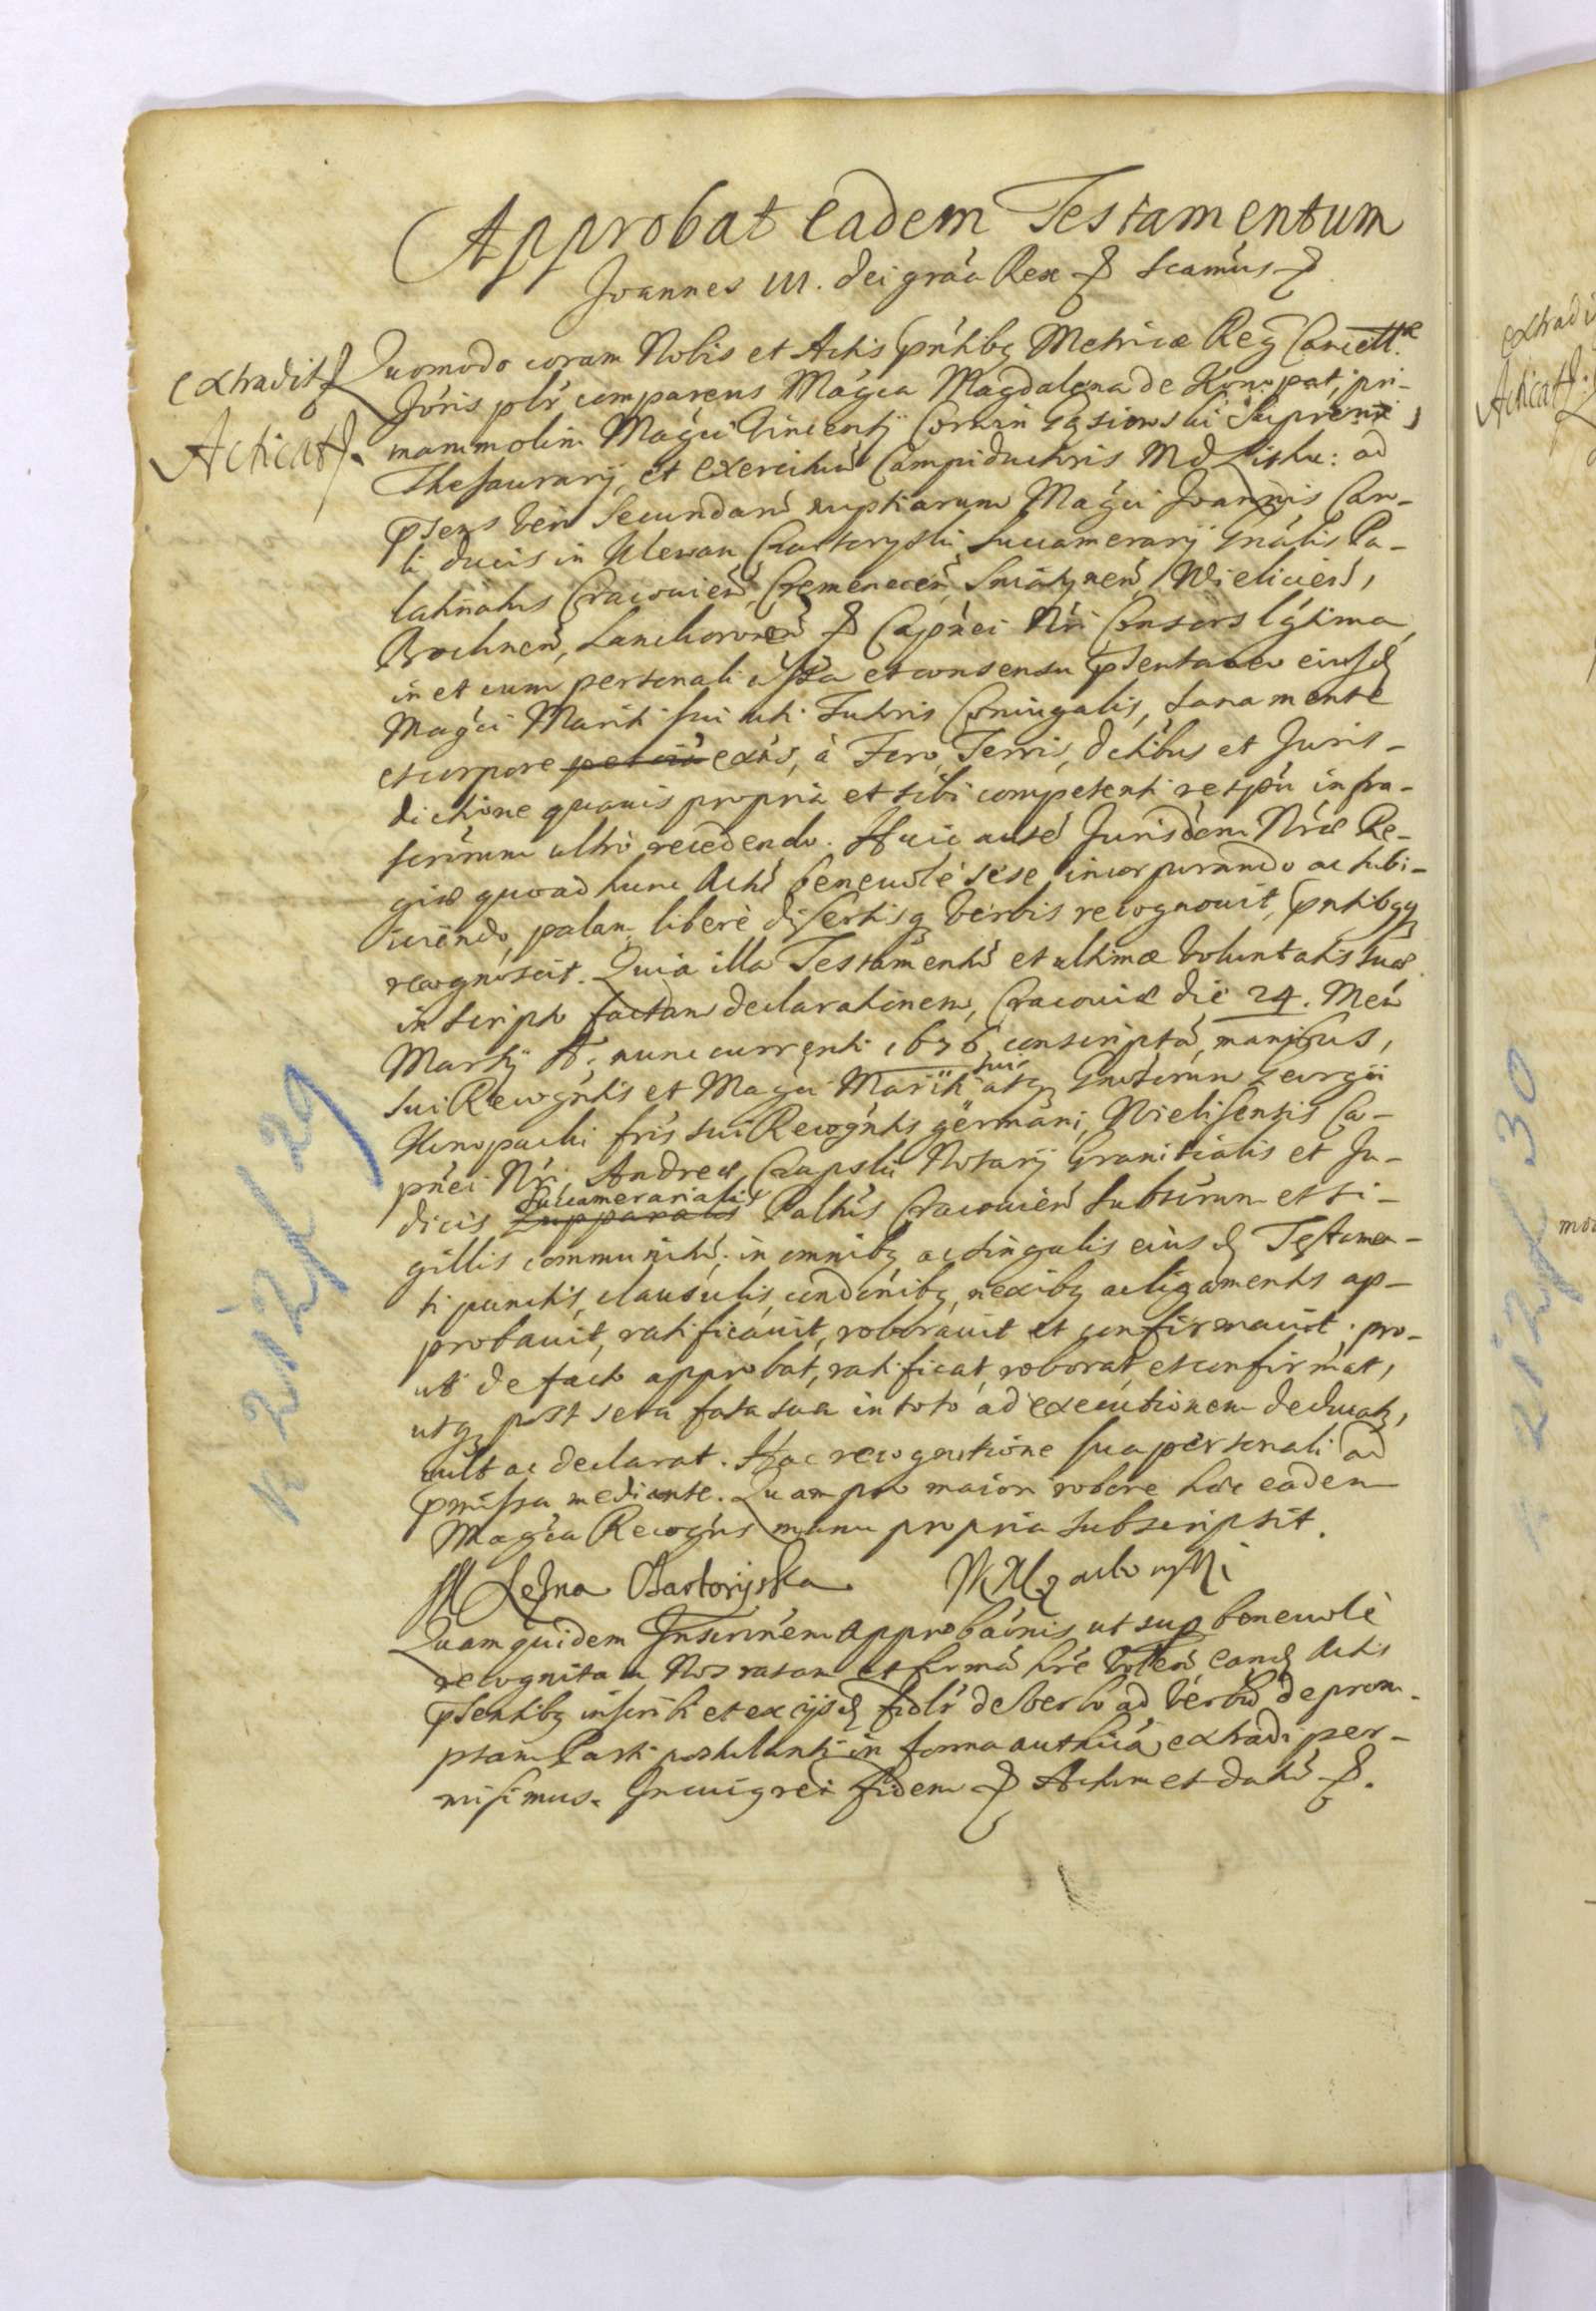 Approbat eadem Testamentum
Joannes III. Dei gráa Rex & Scamús &
Extradit
Acticat.
Quomodo coram Nobis et Actis pńtibq Metricæ Reg Cancell.
Jóris plr̀ comparens Mágca Magdalena de Konopat, pri-
mam molim Mágci Vincenty Corvin Gąsiewski Supremi
Thesaurarij, et Exercituú Campiductoris M D Lithu: ad
psens veró Secundarú nuptiarum Mágci Joannis Caro-
li Ducis in Klewan Czartoryski Succamerarij Gnális Pa-
latinatus Cracovień, Cremeneceń, Sniátyneń, Wielicień,
Bochneń, Lanckoroneń & Capńei Nŕi Consors lgttima,
in et cum personali assta et consensu psentaneo eiusd
Mágci Mariti sui uti Tutoris Coniugalis, sana mente
et corpore exńs, à Foro, Terris, dctibus et Juris-
dictione quavis propria et sibi competenti respũ infra-
scriptorum ultrò recedendo. Huic auté Jurisdcem Nŕæ Re-
giæ quoad hunc Actú benevolè sese incorporando ac subi-
iciendo, palam liberè disertisq verbis recognovit, pńtibqq
recognoscit. Quia illa Testamentú et ultimæ voluntatis suæ
in scripto factam declarationem, Cracoviæ die 24. Meń
Martij A, nunc currenti 1676 conscriptá, manibus,
sui Recogńtis et Mágci Mariti sui atq Gnosorum Georgii
Konopacki fris sui Recogńtis germani, Wielisensis Ca-
pńei Nŕi, Andreæ Czapski Notarij Granitialis et Ju-
dicis Zupparalis Succamerarialis Paltús Cracovień Subscrium et si-
gillis communitú; in omnibq ac singulis eiusd Testamen-
ti punctis, clausulis, condónibq, nexibq ac ligamentis ap-
probavit, ratificavit, roboravit et confirmavit. pro-
ut de facto approbat, ratificat, roborat, et confirmat,
utq post sera fata sua in toto ad executionem deducatq,
vult ac declarat. Hac recognitione sua personali ad
pmissa mediante. Quam pro maiori robore hæc eadem
Mágca Recogńs manu propria subscripsit.
M Leżna Czartoryska
Quam quidem Inscrinem approbaónis ut sup benevolè
recognitam, Nos ratam et firmá hŕe voleń, eand Actis
psentibq inscribi et ex ijsd fidlr̀ de verbo ad verbú deprom-
ptam Parti postulanti in forma authicá extradi per-
misimus. In cuius rei fidem & Actum et datú &.